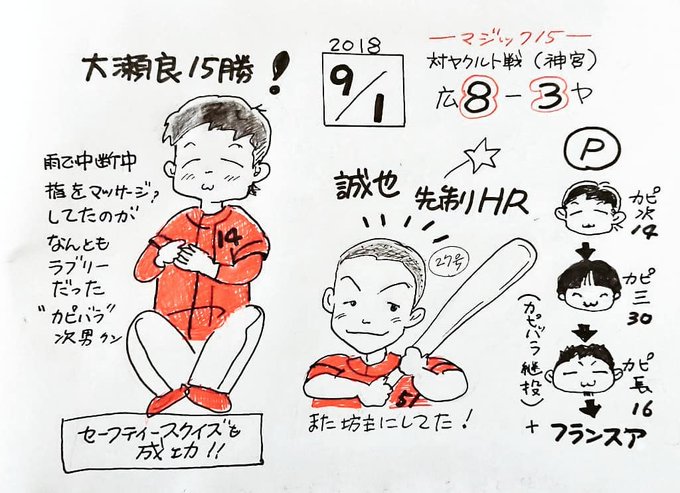 大瀬良15勝!
2018
9/1
―マジック15―
対ヤクルト戦(神宮)
広8-3ヤ
雨で中断中
指をマッサージ?
してたのが
なんとも
ラブリー
だった
"カピバラ"
次男クン
14
セーフティースクイズも
成功!!
誠也
先制HR
27号
51
また坊主にしてた!
P
カピ次14
カピ三30
カピ長16
(カピバラ継投)
+フランスア